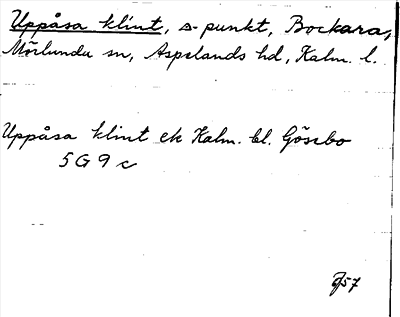 Uppåsa klint, s-punkt, Bockara,
Mörlunda sn, Aspelands hd, Kalm. l.
Uppåsa klint ek Kalm. bl. Gösebo
5G9c